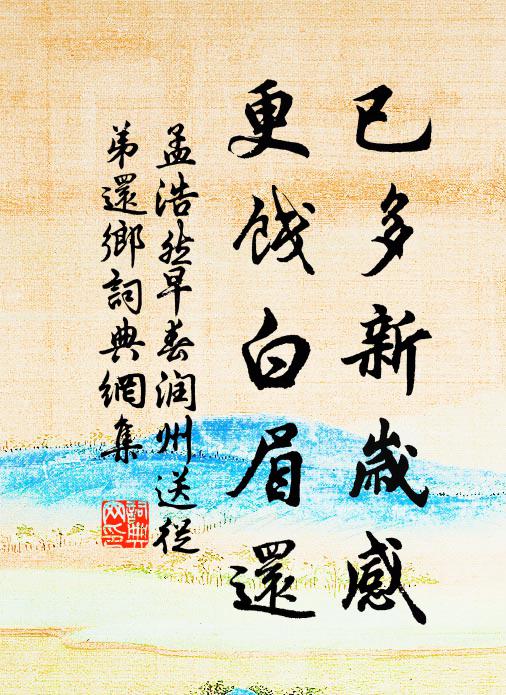 已多新歲感
更餞白眉還
孟浩然早春润州送從
弟還鄉詞典網集
詞典
网印